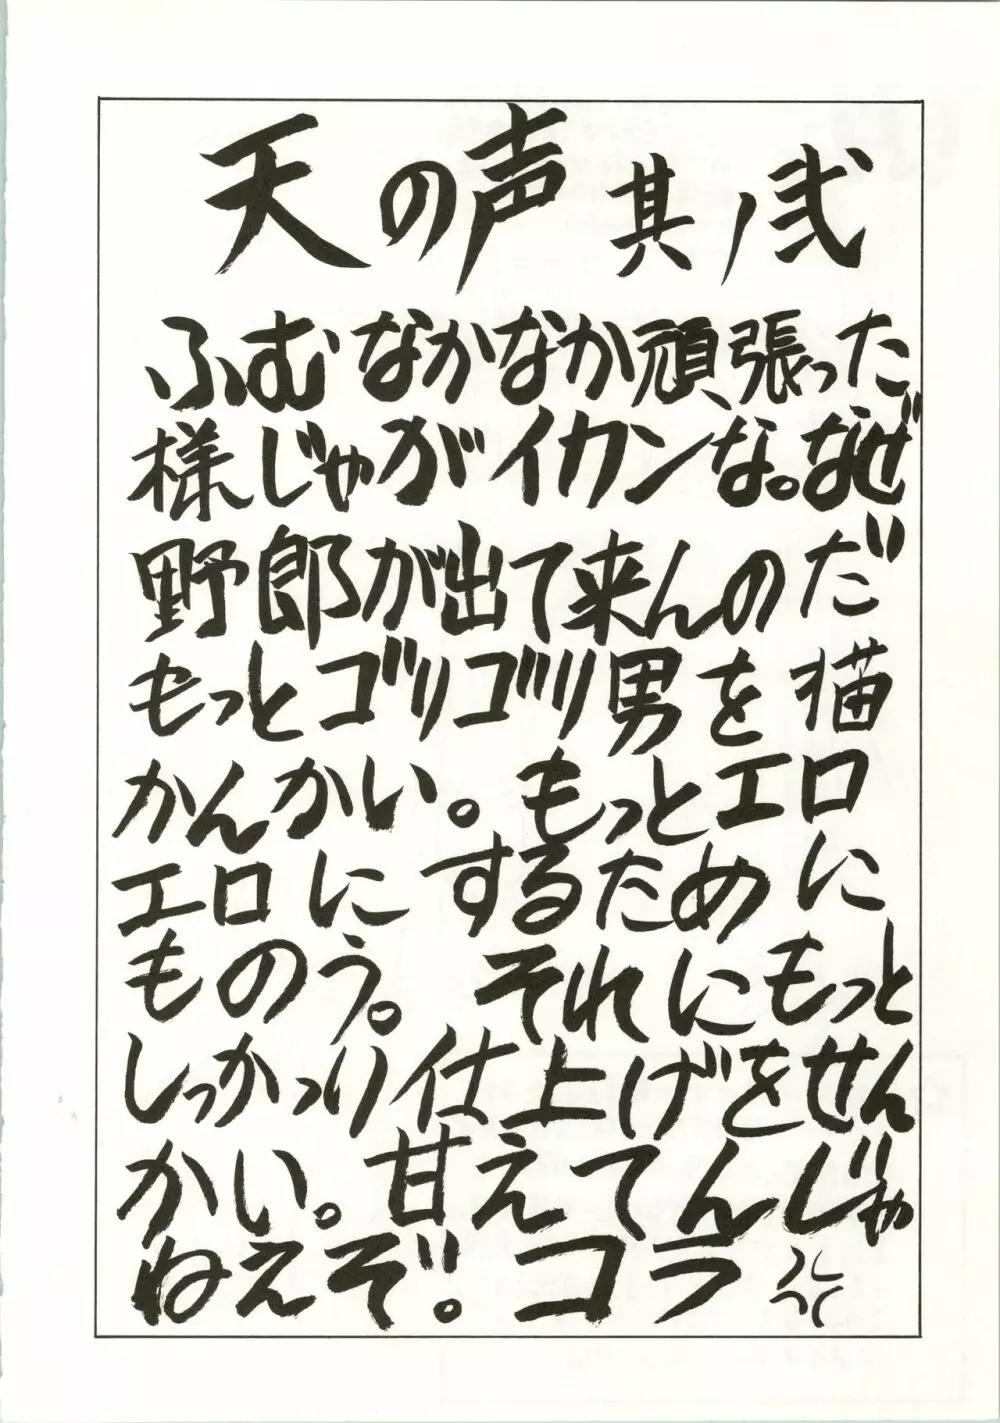 天の声 其ノ弐
ふむなかなか頑張った
様じゃがイカンな。なぜ
野郎が出て来んのだ
もっとゴリゴリ男を描
かんかい。もっとエロ
エロにするためにに
ものう。それにもっと
しっかり仕上げをせん
かい。甘えてんじゃ
ねえぞ。コラ